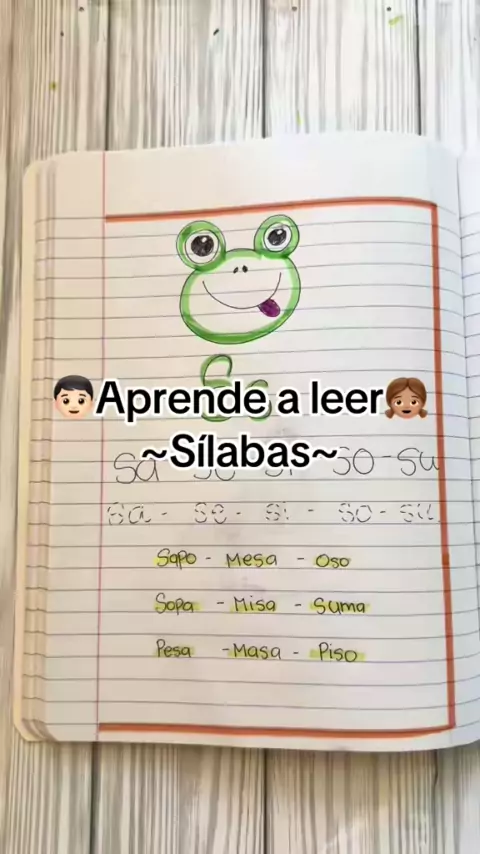 Ss
👦🏻Aprende a leer👧🏽
~Sílabas~
sa - se - si - so - su
sa - se - si - so - su
Sapo - Mesa - Oso
Sopa - Misa - Suma
Pesa - Masa - Piso